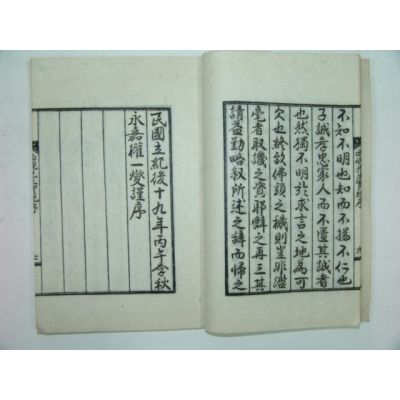 不知不明也知而不揚不仁也
子誠孝思家人而不匱其誠者
也然獨不明於求言之地為可
欠也終放佛頭之穢則豈非濫
毫者取譏之資耶辭之再三其
請益勤略叙所述之辭而歸之
民國立紀後十九年丙午季秋
永嘉權一燮謹序